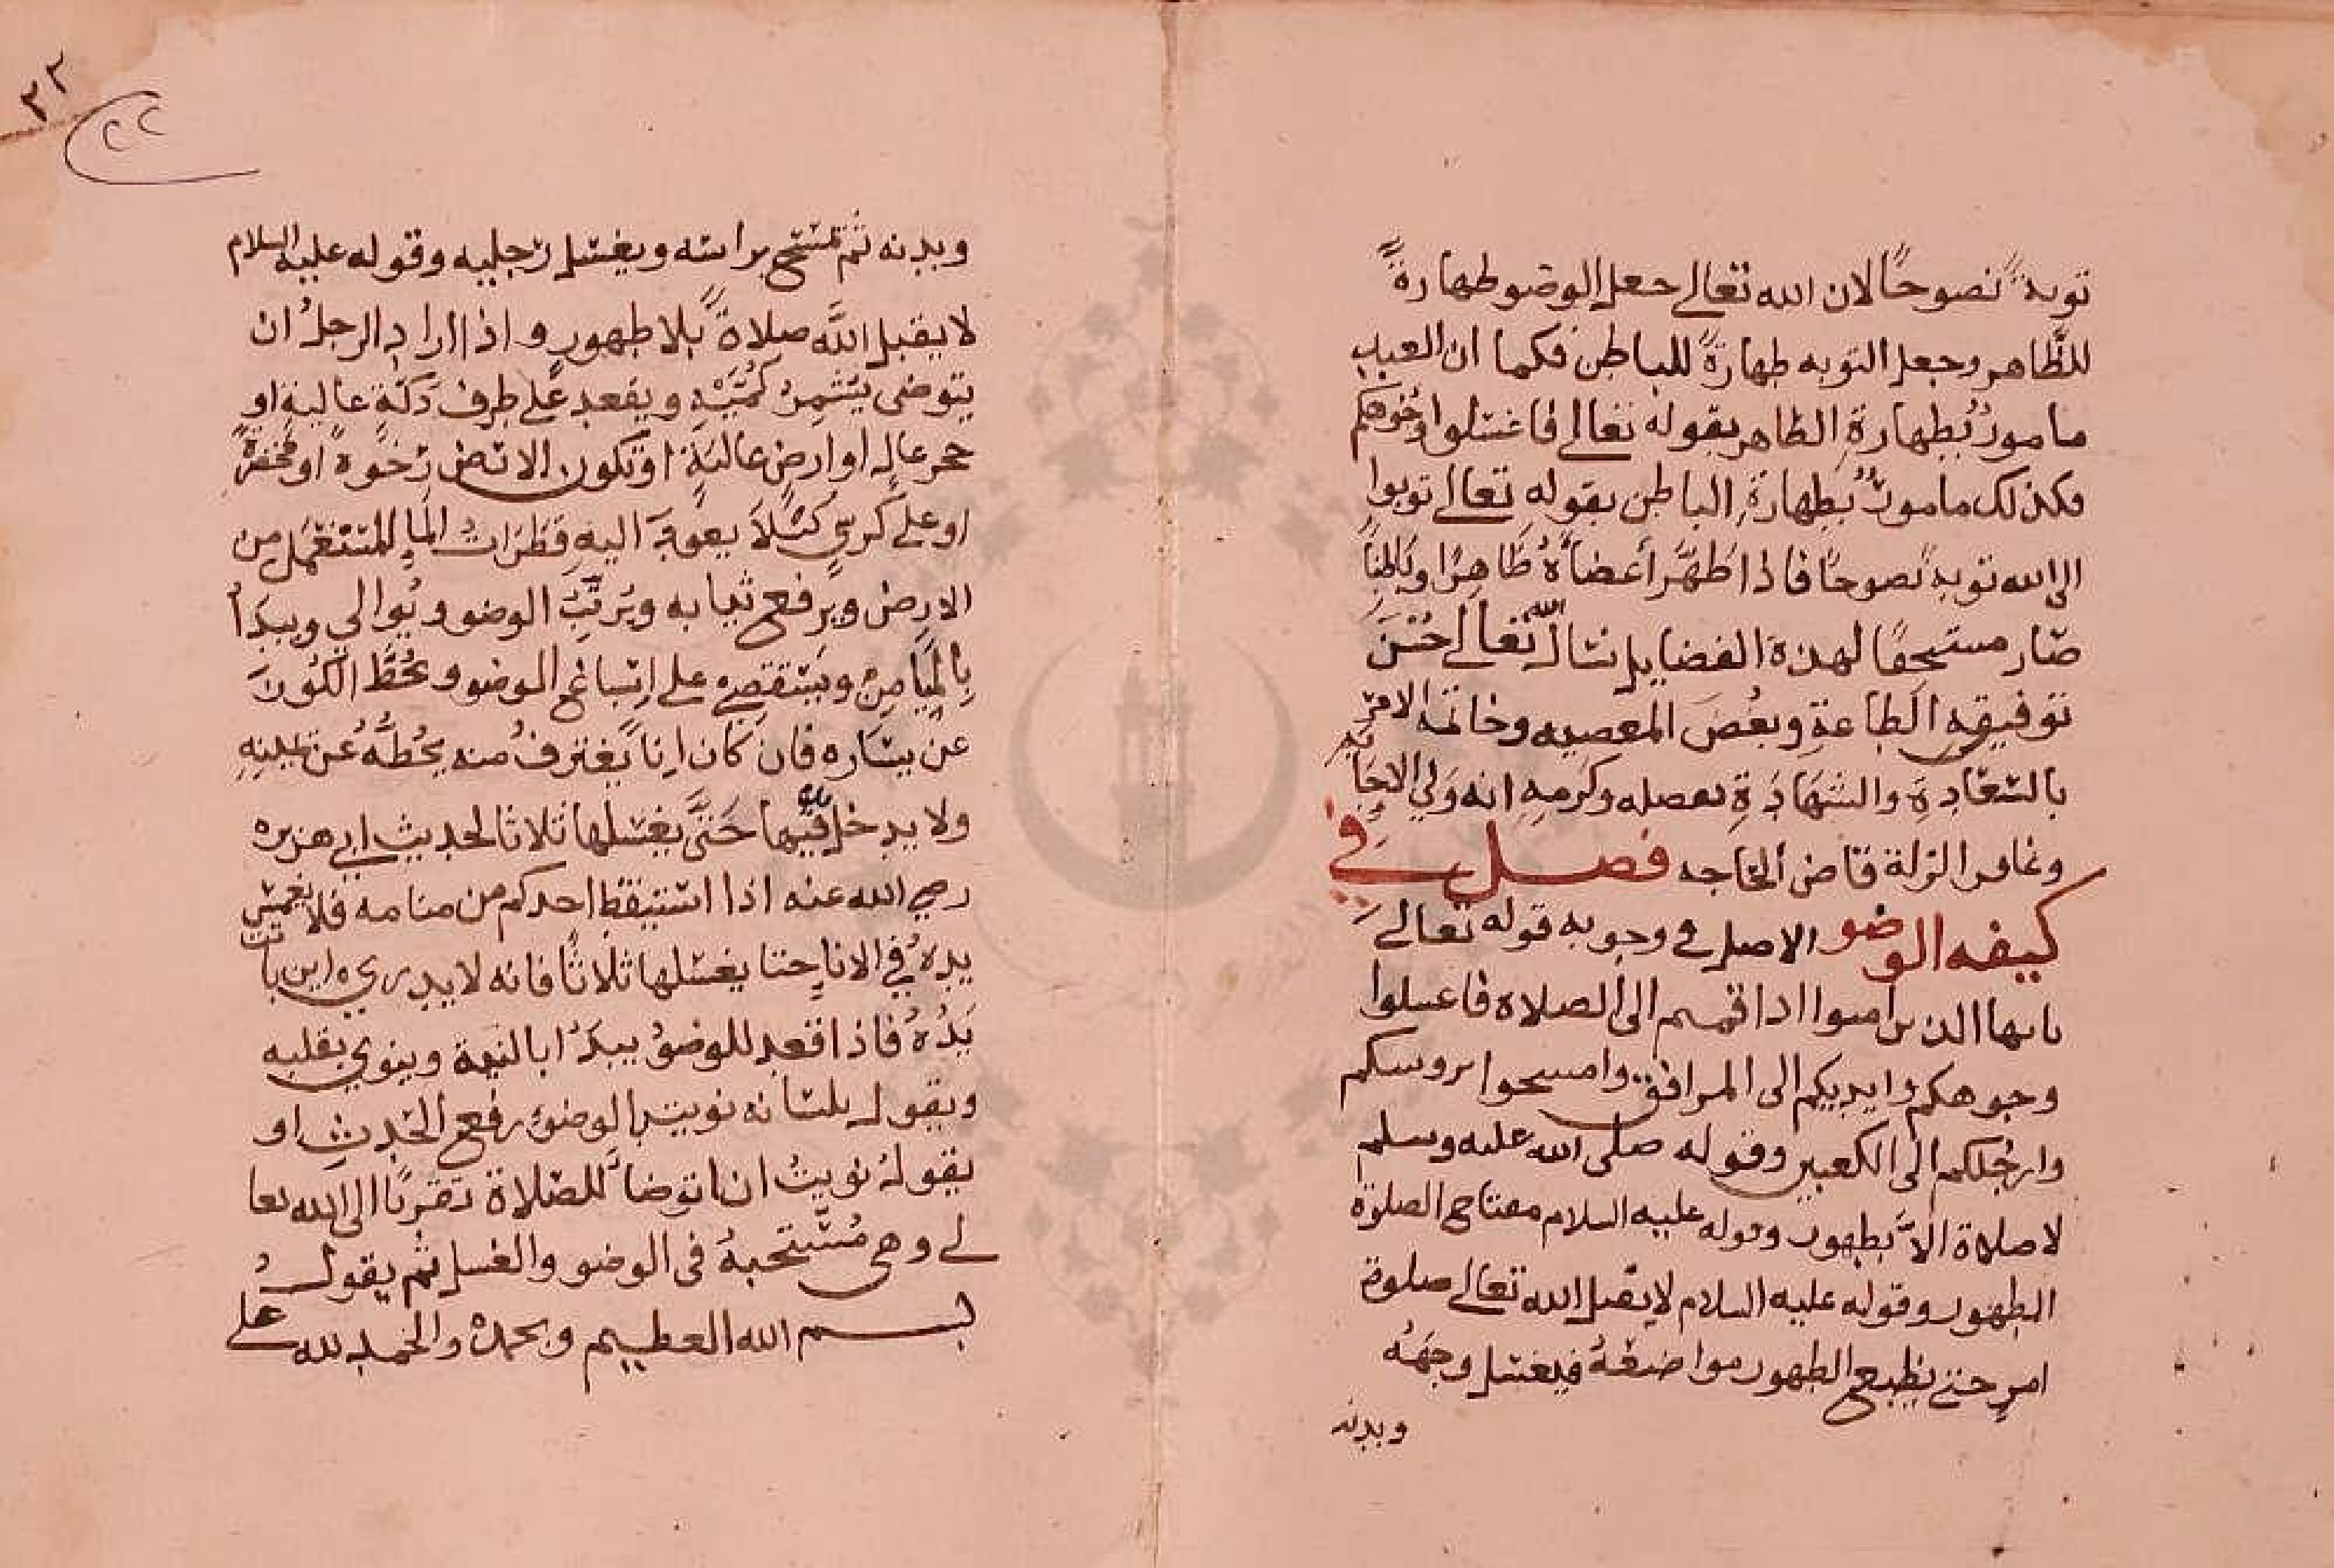 توبةً نصوحًا لان الله تعالى جعل الوضو طهارةً
للظَّاهر وجعل التوبه طهارةً للباطن فكما ان العبد
مامورٌ بطهارةِ الظاهر بقوله تعالى فاغسلوا وُجُوهكم
فكذلك مامورٌ بطهارةِ الباطن بقوله تعالى توبوا
الى الله توبةً نصوحًا فاذا طَهَّر أعضاَهُ ظَاهِرًا وباطِنًا
صَار مستحِقًا لهذه الفضايل نسال اللّه تعالى حُسْنَ
توفيقِهِ الطاعةِ وبُغْضَ المعصيه وخاتمة الامر
بالسَّعَادِةِ والشهَادَةِ بفضله وكَرمِهِ انه وَلي الاِجَابَه
وغافر الزلة قاضى الحَاجه فصل في
كيفه الوضو الاصل فى وجوبه قوله تعالى
يايها الذين امنوا اذا قمتم الى الصلاة فاغسلوا
وجوهكم وايديكم الى المرافق وامسحوا بروسكم
وارجُلكم الى الكعبين وقوله صلى الله عليه وسلم
لا صلاة الاَّ بطهور وقوله عليه السلام مفتاح الصلوة
الطهور وقوله عليه السلام لا يقبل الله تعالى صلوة
امرٍ حتى يضع الطهور مواضعَهُ فيغسل وجهَهُ
وبدنه
٢٢
٢٢
وبدنه ثم يمسَح براسه ويغسل رجليه وقوله عليه السلام
لا يقبل اللَّه صلاةً بلا طهورٍ واذا اراد الرجلُ ان
يتوضى يشمِرُ كُمَّيْهِ ويقعد على طرف دَكَةٍ عاليةٍ او
حجرعالٍ او ارضٍ عاليَةٍ او تكون الارض رخوةً او محفرةً
او على كرسيٍ كَيْلَا يعودَ اليهِ قَطَراتُ المآِ المُسْتَعْمَل من
الارض ويرفع ثيابه ويُرتّبُ الوضو ويُوالي ويبدَأُ
بالميَامِنِ ويَسْتقصِي على اِسْباغ الوضو ويحُطَّ الكُوزَ
عن يسَاره فان كان اِناً يغترفُ منه يحُطّهُ عن يمينِهِ
ولا يدخل يده فيها حَتَّى يغسلها ثلاثا لحديث ابي هريره
رضي الله عنه اذا استيقظ احدكم من منامه فلا يغمس
يدهُ في الاناِ حتا يغسلها ثلاثًا فانه لا يدري اين باتت
يَدُهُ فاذا قعد للوضوُ يبدَاُ بالنية وينوي بقلبه
ويقول بلسانه نويت بالوضوء رفع الحَدثِ او
يقولُ نويتُ ان اتوضاَ للصَلاةِ تقربًا الى الله تعا
لى وهى مُسْتحبةٌ فى الوضو والغسل ثم يقولُ
بسم الله العظيم وبحمدهِ والحَمد لله على